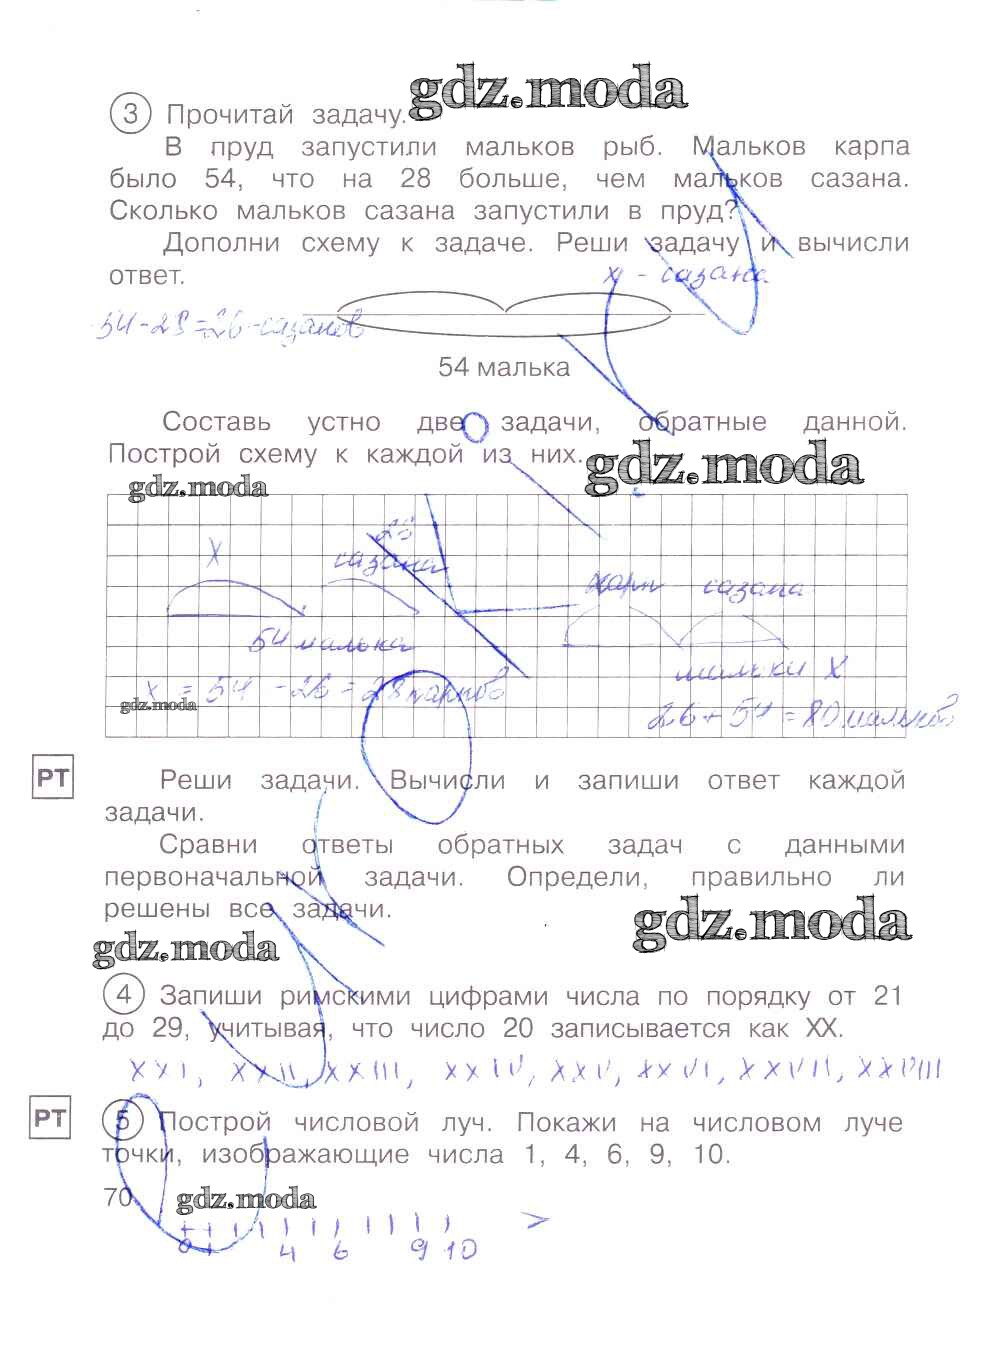 gdz.moda
3 Прочитай задачу.
В пруд запустили мальков рыб. Мальков карпа
было 54, что на 28 больше, чем мальков сазана.
Сколько мальков сазана запустили в пруд?
Дополни схему к задаче. Реши задачу и вычисли
ответ.
х - сазана
54-28=26-сазанов
54 малька
Составь устно две задачи, обратные данной.
Построй схему к каждой из них.
gdz.moda
gdz.moda
X 26
сазана
карп сазана
54 малька
мальки X
x = 54 - 26 = 28 карпов
gdz.moda
26+54=80 мальков
РТ
Реши задачи. Вычисли и запиши ответ каждой
задачи.
Сравни ответы обратных задач с данными
первоначальной задачи. Определи, правильно ли
решены все задачи.
gdz.moda
gdz.moda
4 Запиши римскими цифрами числа по порядку от 21
до 29, учитывая, что число 20 записывается как XX.
XXI, XXII, XXIII, XXIV, XXV, XXVI, XXVII, XXVIII
РТ
5 Построй числовой луч. Покажи на числовом луче
точки, изображающие числа 1, 4, 6, 9, 10.
70
gdz.moda
0 1 4 6 9 10